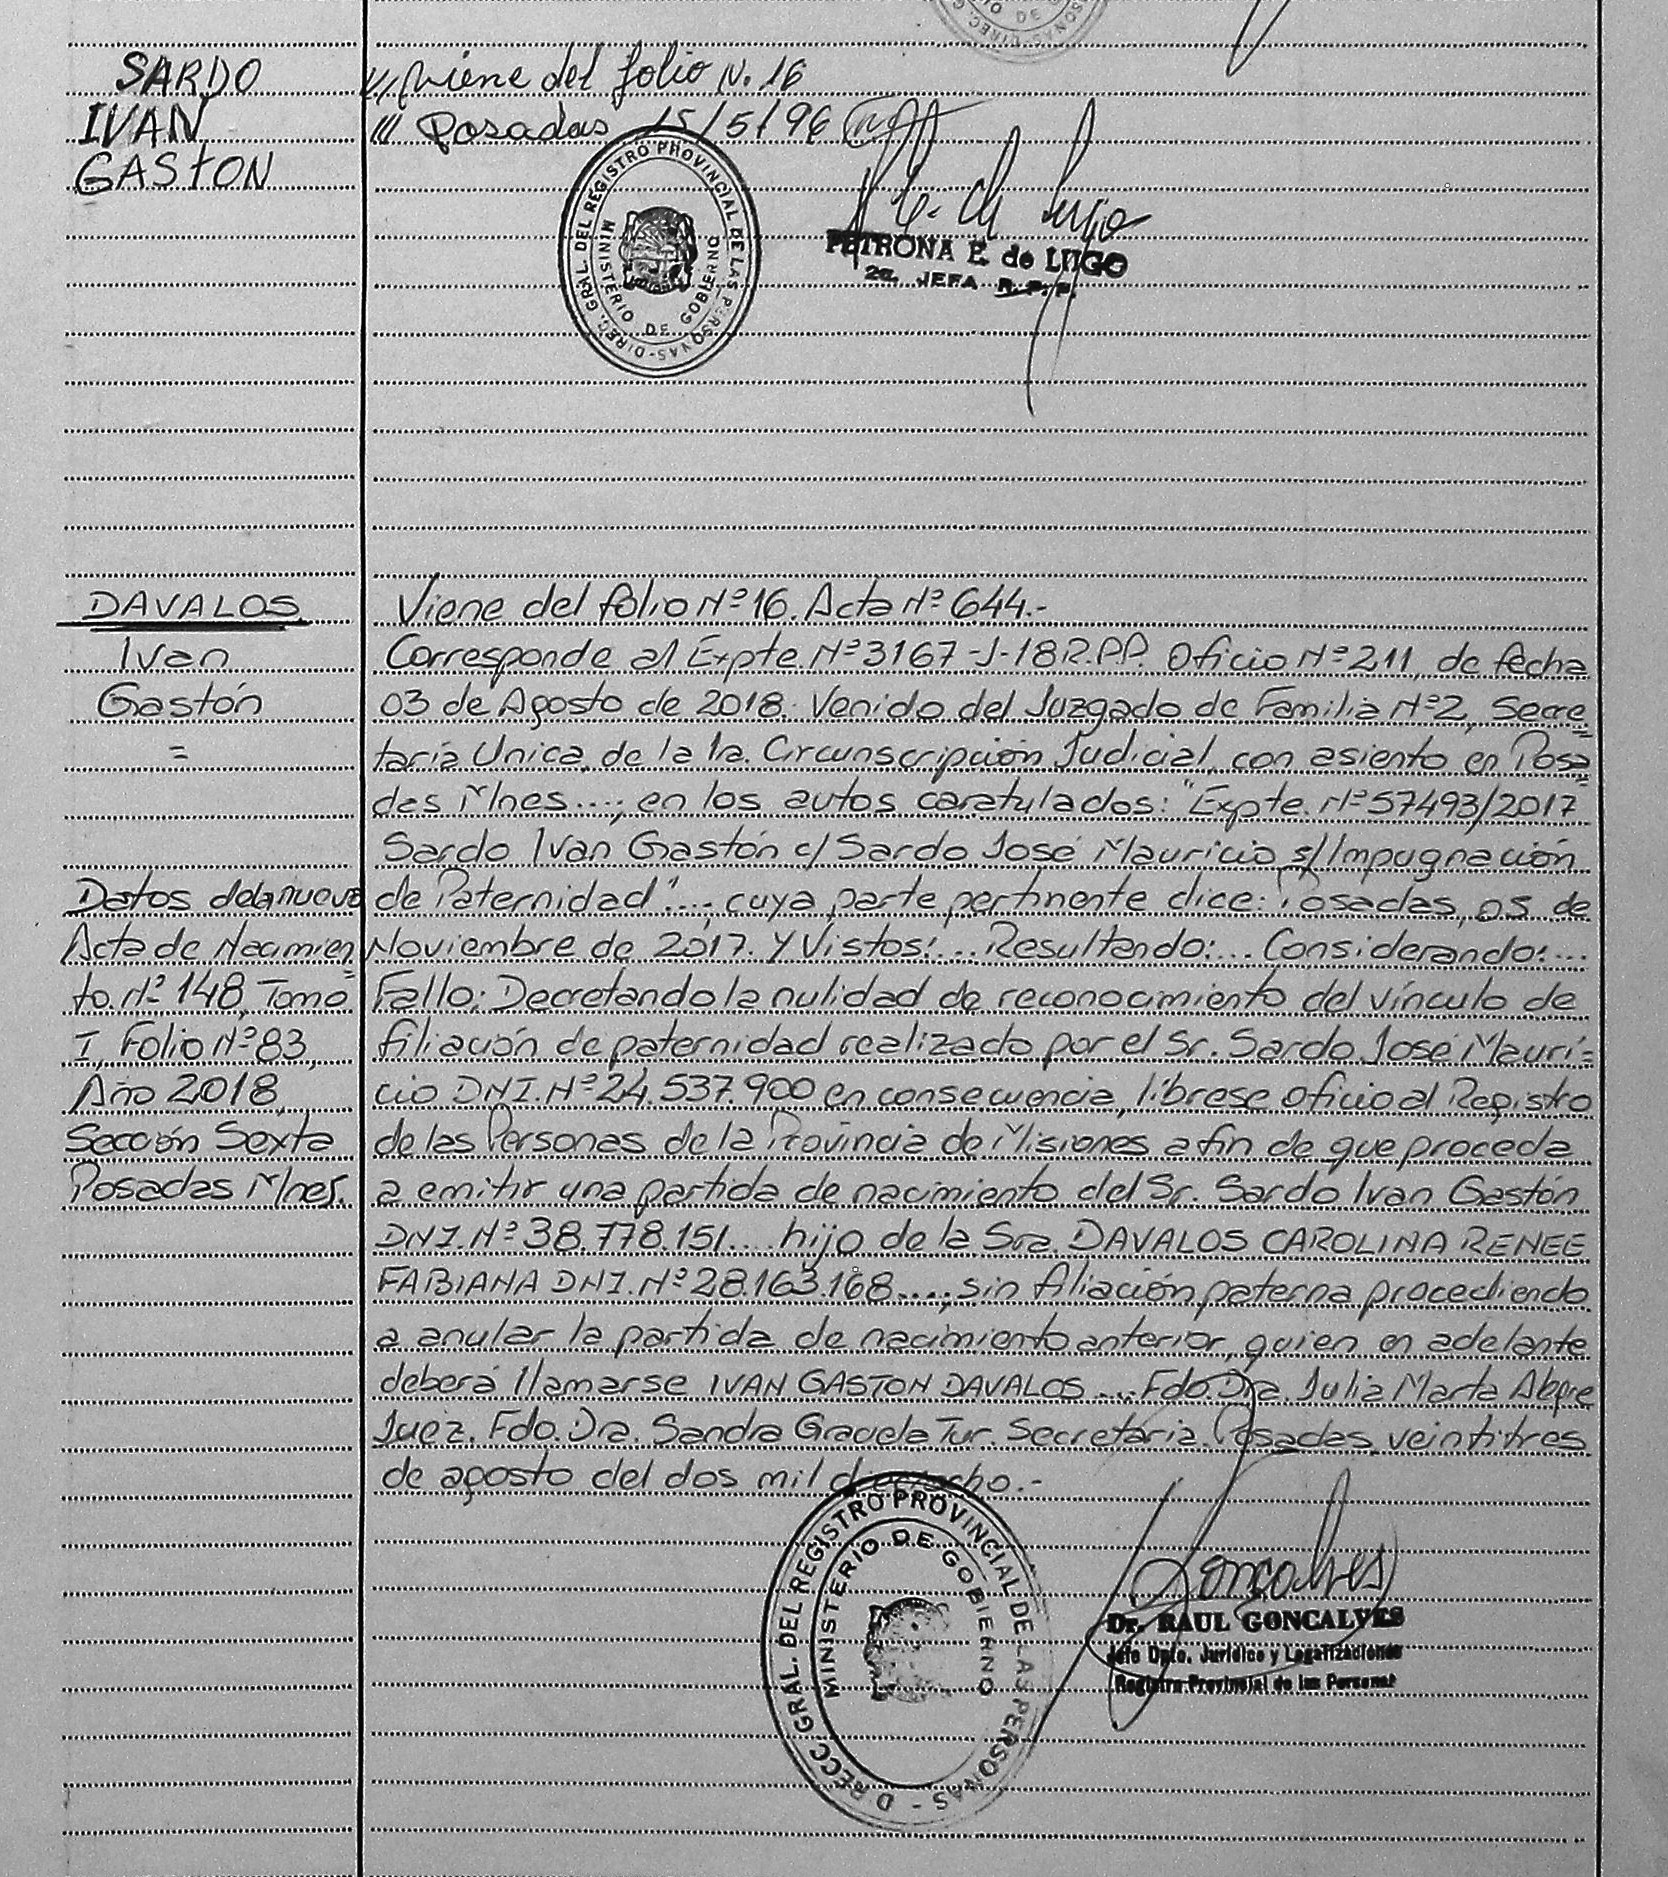 SARDO
IVAN
GASTON
Viene del folio N. 16
/// Posadas 15/5/96
DIREC. GRAL. DEL REGISTRO PROVINCIAL DE LAS PERSONAS
MINISTERIO DE GOBIERNO
PETRONA E. de LUGO
2a. JEFA R. P. P.
DAVALOS
Ivan
Gastón
=
Datos de la nueva
Acta de Nacimien=
to. Nº 148, Tomo
I, Folio Nº 83,
Año 2018,
Sección Sexta
Posadas Mnes.
Viene del folio Nº 16. Acta Nº 644.-
Corresponde al Expte. Nº 3167-J-18 R.P.P. Oficio Nº 211, de fecha
03 de Agosto de 2018. Venido del Juzgado de Familia Nº 2, Secre=
taría Unica, de la 1a. Circunscripción Judicial, con asiento en Posa=
das Mnes....; en los autos caratulados: "Expte. Nº 57493/2017
Sardo Ivan Gastón c/ Sardo José Mauricio s/ Impugnación
de Paternidad"...; cuya parte pertinente dice: Posadas, 05 de
Noviembre de 2017. Y Vistos:... Resultando:... Considerando:...
Fallo: Decretando la nulidad de reconocimiento del vínculo de
filiación de paternidad realizado por el Sr. Sardo José Mauri=
cio DNI. Nº 24.537.900 en consecuencia, líbrese oficio al Registro
de las Personas de la Provincia de Misiones a fin de que proceda
a emitir una partida de nacimiento del Sr. Sardo Ivan Gastón
DNI. Nº 38.778.151.... hijo de la Sra. DAVALOS CAROLINA RENEE
FABIANA DNI. Nº 28.163.168...., sin filiación paterna procediendo
a anular la partida de nacimiento anterior, quien en adelante
deberá llamarse IVAN GASTON DAVALOS.... Fdo. Dra. Julia Marta Alegre
Juez. Fdo. Dra. Sandra Graciela Tur. Secretaria. Posadas, veintitres
de agosto del dos mil dieciocho.-
DIRECC. GRAL. DEL REGISTRO PROVINCIAL DE LAS PERSONAS
MINISTERIO DE GOBIERNO
Goncalves
Dr. RAUL GONCALVES
Jefe Dpto. Jurídico y Legalizaciones
Registro Provincial de las Personas